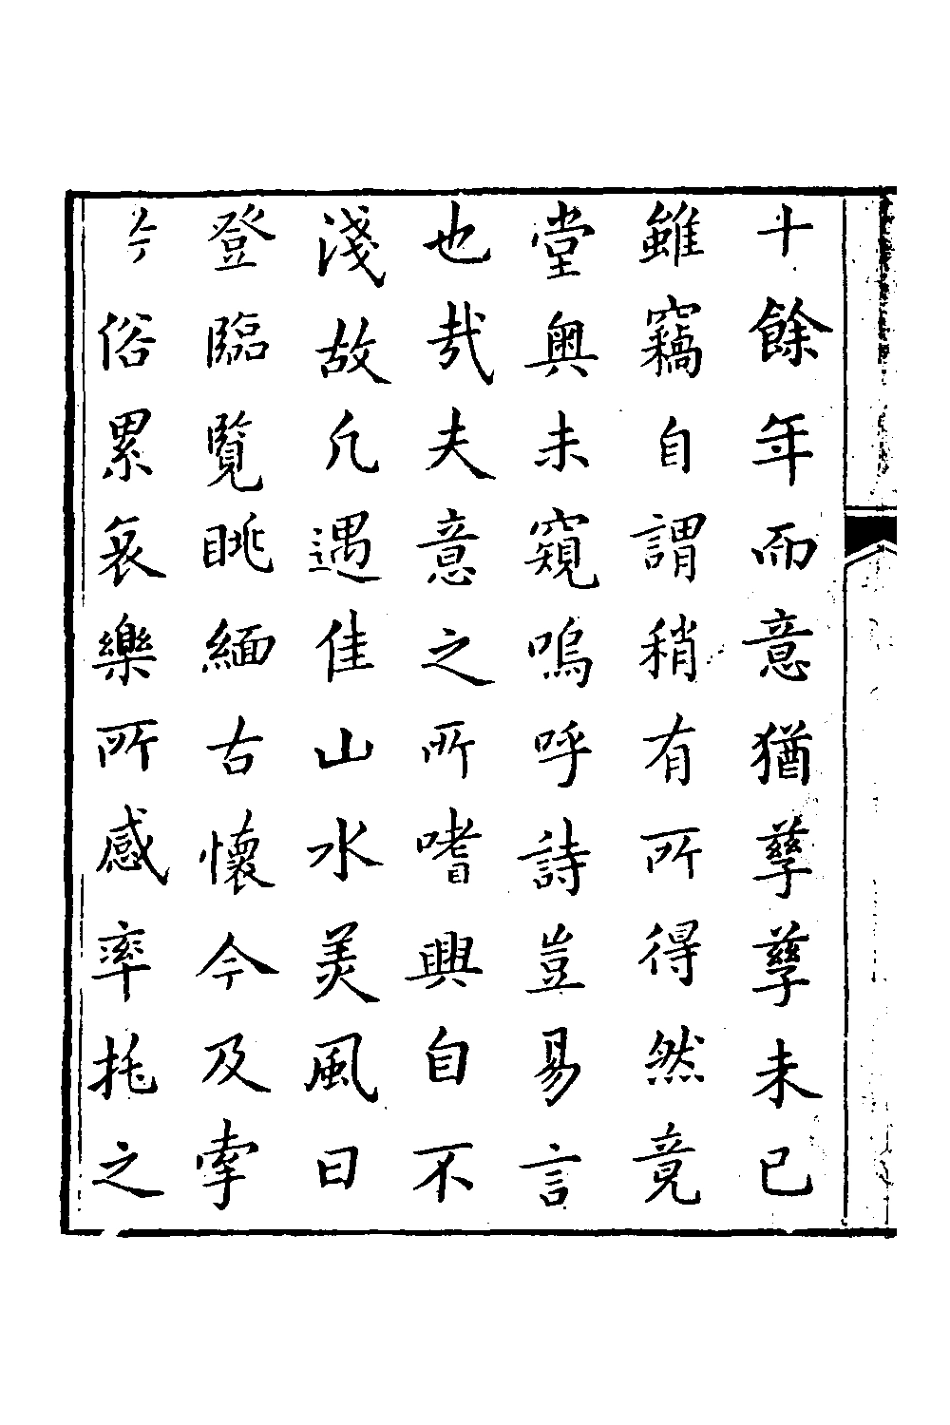 十餘年而意猶孳孳未已
雖竊自謂稍有所得然竟
堂奧未窺嗚呼詩豈易言
也哉夫意之所嗜興自不
淺故凡遇佳山水美風日
登臨覽眺緬古懷今及牽
俗累哀樂所感率托之